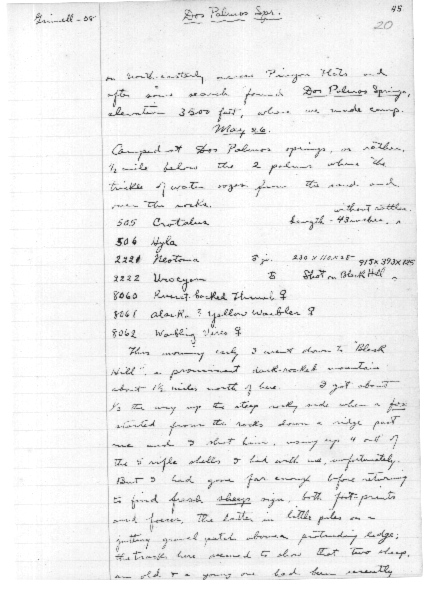 Grinnell - 08
Dos Palmos Spr.
48
20
on north-easterly across Pinyon Flats and
after some search found Dos Palmos Springs,
elevation 3500 feet, where we made camp.
May 26.
Camped at Dos Palmos springs, or rather,
1/2 mile below the 2 palms where the
trickle of water oozes from the sand and
over the rocks.
without rattles.
505 Crotalus length - 43 inches.
506 Hyla
2221 Neotoma 5 jv. 230 x 110 x 28
2222 Urocyon 5 Shot on Black Hill 915 x 393 x 125
8060 Russet-backed Thrush ♀
8061 Alaska? Yellow Warbler ♀
8062 Warbling Vireo ♀
This morning early I went down to "Black
Hill", a prominent dark-rocked mountain
about 1 1/2 miles north of here. I got about
1/2 the way up the steep rocky side when a fox
started from the rocks down a ridge past
me and I shot him, using up 4 out of
the 5 rifle shells I had with me, unfortunately.
But I had gone far enough before returning
to find fresh sheep sign, both foot-prints
and foeces, the latter in little piles on a
gravel patch above a protruding ledge;
the track here seemed to show that two sheep,
an old & a young one had been recently